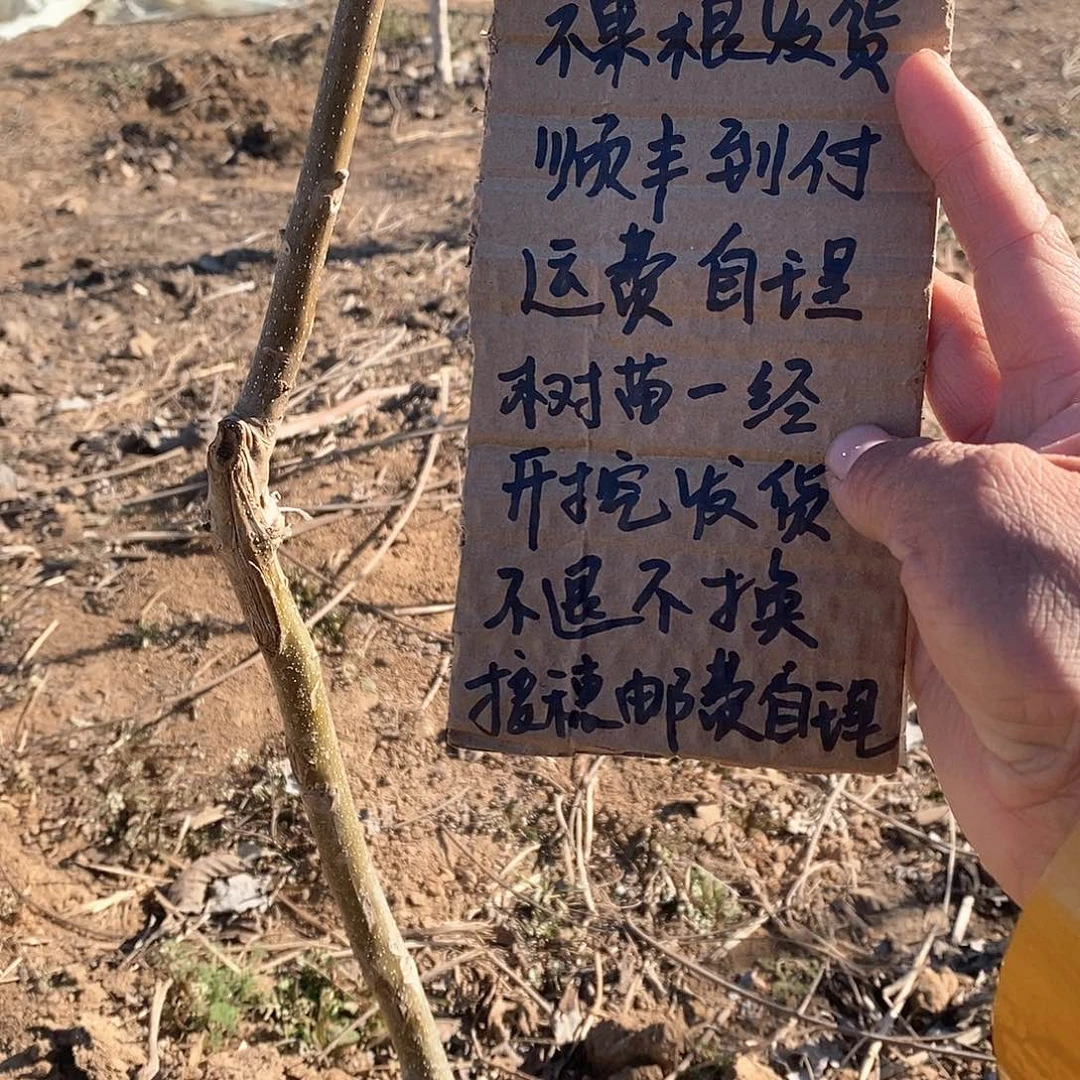 不果木根发货
顺丰到付
运费自理
树苗一经
开挖发货
不退不换
接穗邮费自理